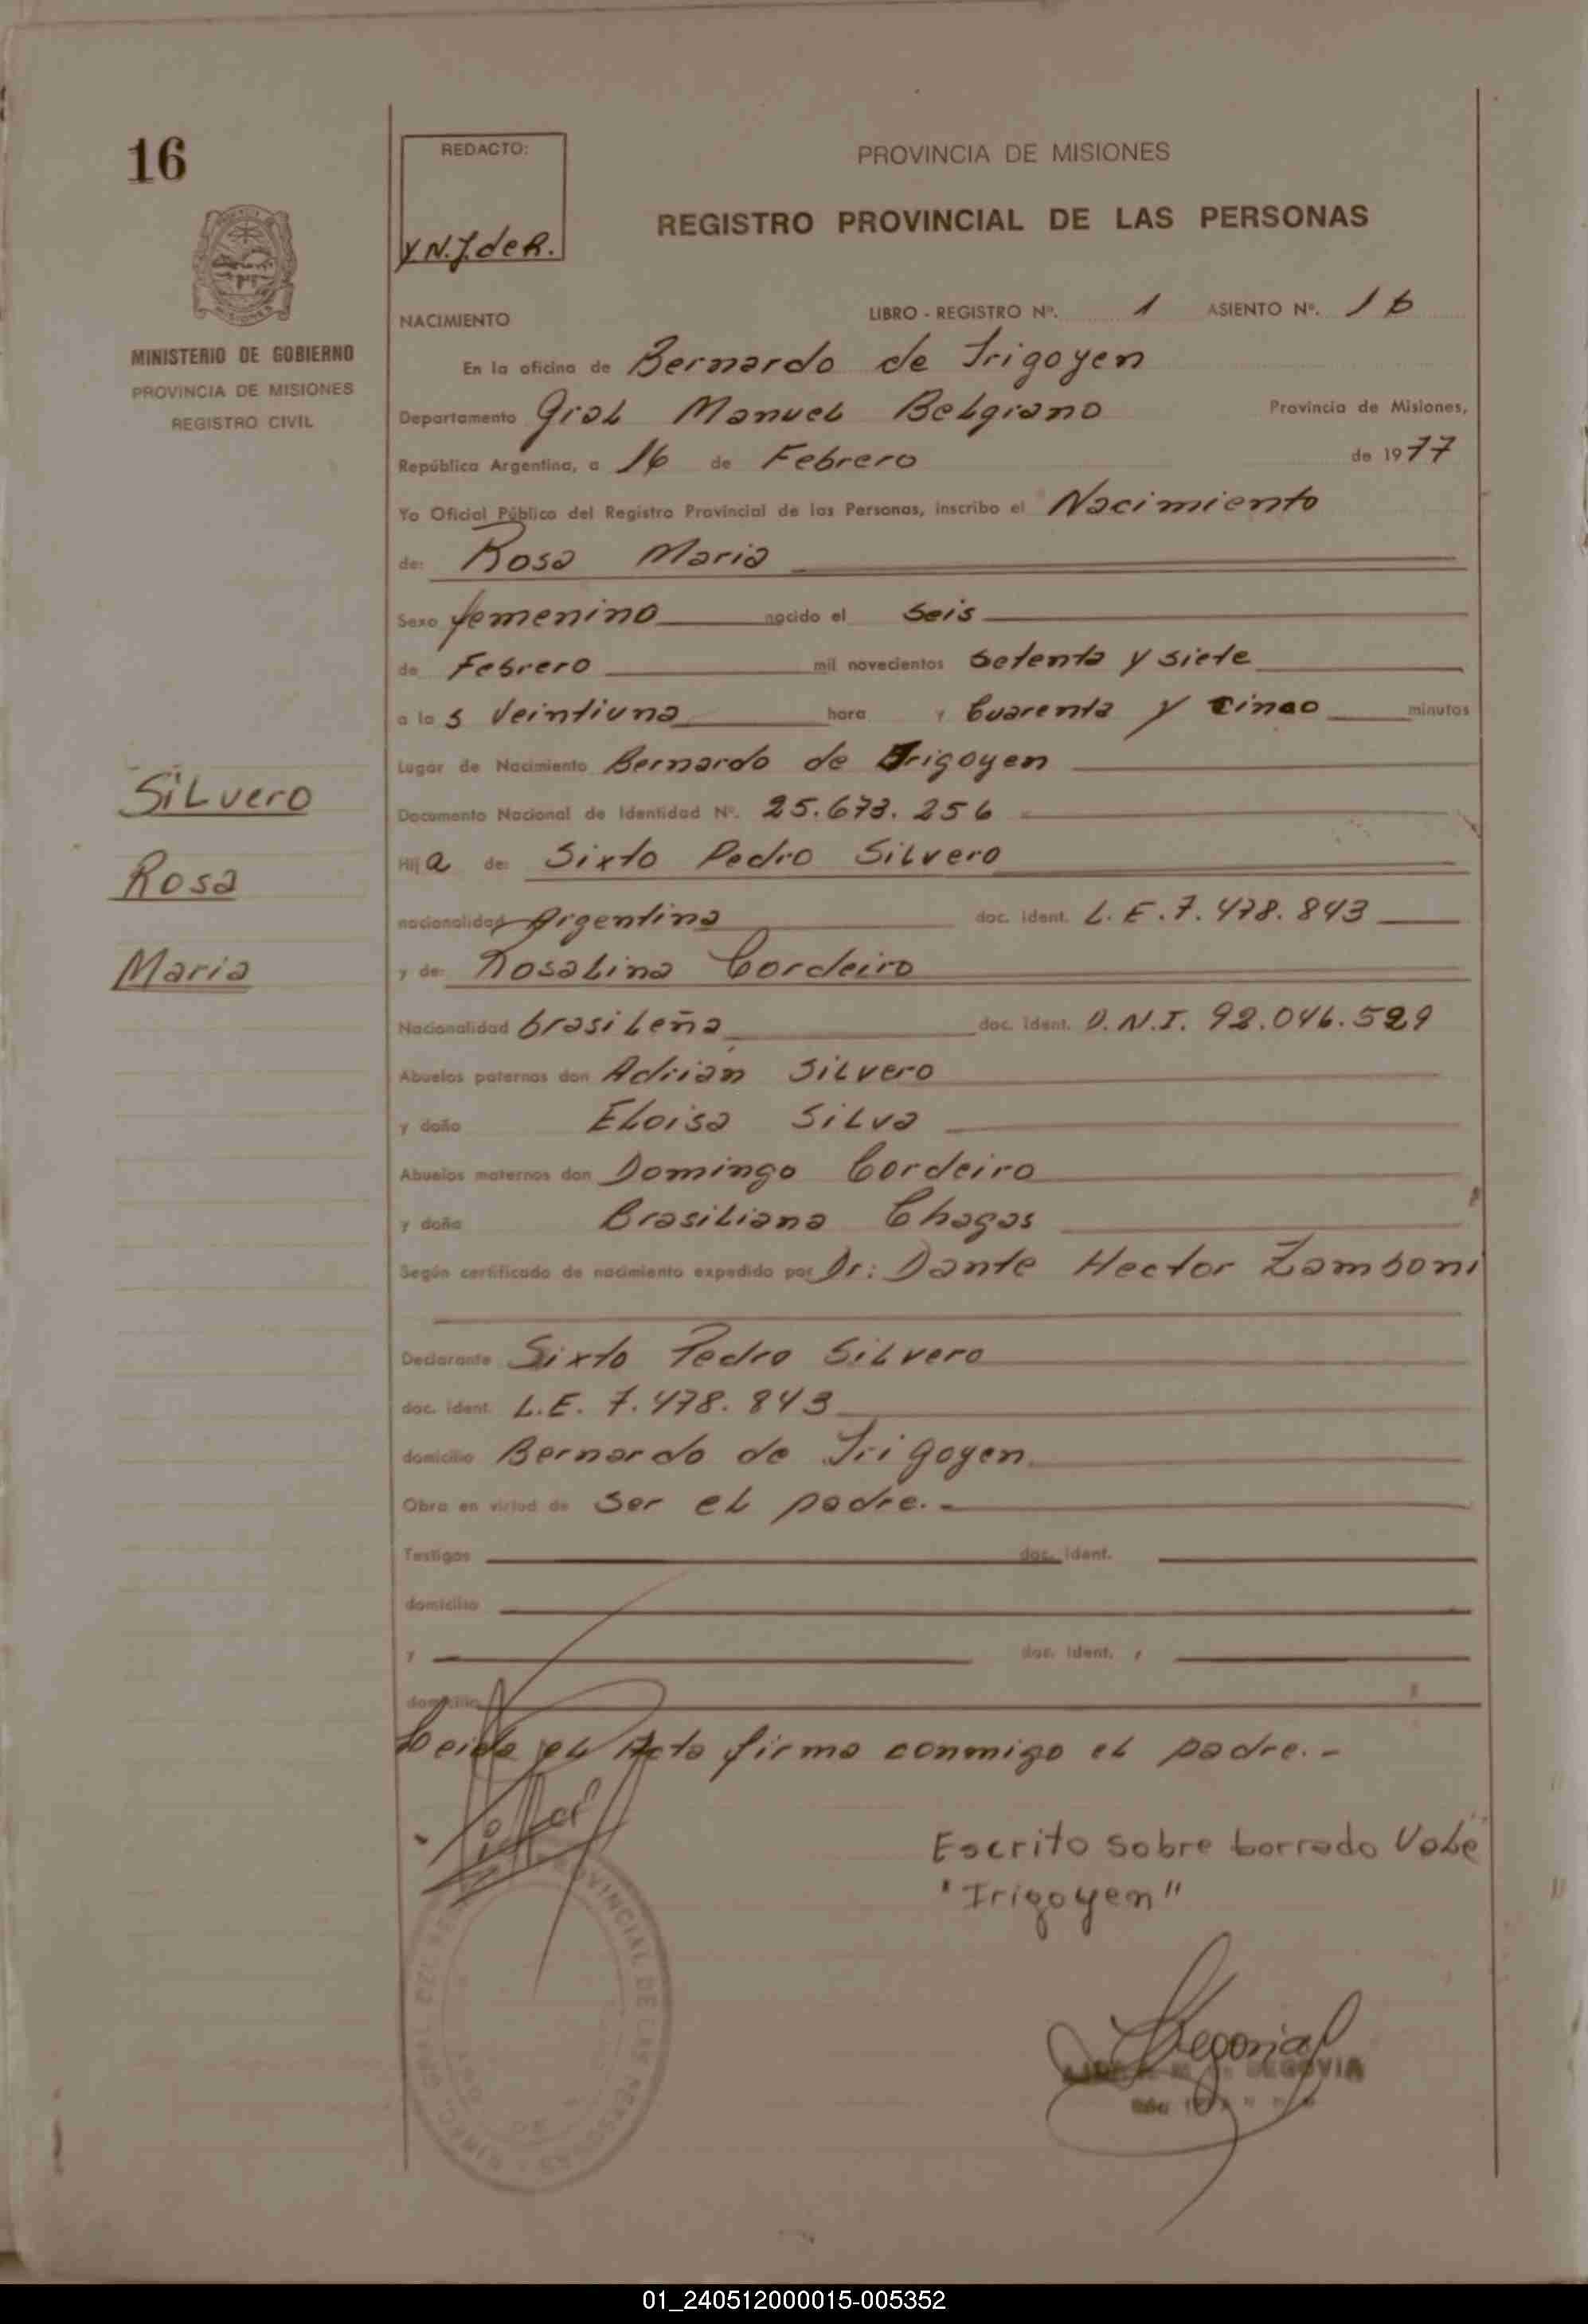 16
REDACTO:
Y.N.J.deR.
PROVINCIA DE MISIONES
REGISTRO PROVINCIAL DE LAS PERSONAS
MINISTERIO DE GOBIERNO
PROVINCIA DE MISIONES
REGISTRO CIVIL
NACIMIENTO
LIBRO - REGISTRO Nº. 1 ASIENTO Nº. 16
En la oficina de Bernardo de Irigoyen
Departamento Gral Manuel Belgrano Provincia de Misiones,
República Argentina, a 16 de Febrero de 1977
Yo Oficial Público del Registro Provincial de las Personas, inscribo el Nacimiento
de: Rosa Maria
Sexo femenino nacido el Seis
de Febrero mil novecientos Setenta y siete
a la s Veintiuna hora y Cuarenta y Cinco minutos
Lugar de Nacimiento Bernardo de Irigoyen
Documento Nacional de Identidad Nº. 25.673.256
Hij a de: Sixto Pedro Silvero
nacionalidad Argentina doc. ident. L.E.7.478.843
y de: Rosalina Cordeiro
Nacionalidad brasileña doc. ident. D.N.I. 92.046.529
Abuelos paternos don Adrián Silvero
y doña Eloisa Silva
Abuelos maternos don Domingo Cordeiro
y doña Brasiliana Chagas
Según certificado de nacimiento expedido por Dr: Dante Hector Zamboni
Declarante Sixto Pedro Silvero
doc. ident. L.E. 7.478.843
domicilio Bernardo de Irigoyen
Obra en virtud de Ser el padre.-
Testigos doc. ident.
domicilio
y doc. ident.
domicilio
Leida el Acta firma conmigo el padre.-
Escrito sobre borrado Vale
"Irigoyen"
SEGOVIA
Silvero
Rosa
Maria
PROVINCIAL DE LAS PERSONAS
01_240512000015-005352